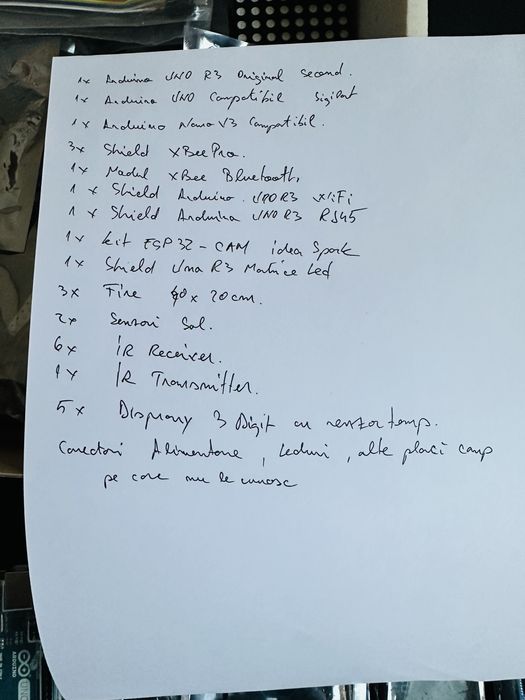 1x Arduino UNO R3 Original Second.
1x Arduino UNO Compatibil Sigilat
1x Arduino Nano V3 Compatibil.
3x Shield XBee Pro.
1x Modul XBee Bluetooth,
1x Shield Arduino UNO R3 WiFi
1x Shield Arduino UNO R3 RJ45
1x kit ESP32-CAM idea Spark
1x Shield Uno R3 Matrice Led
3x Fire 40x20cm.
2x Senzori Sol.
6x IR Receiver.
1x IR Transmitter.
5x Display 3 Digit cu senzor temp.
Conectori Alimentare, Leduri, alte placi comp
pe care nu le cunosc
ARDUINO
UNO